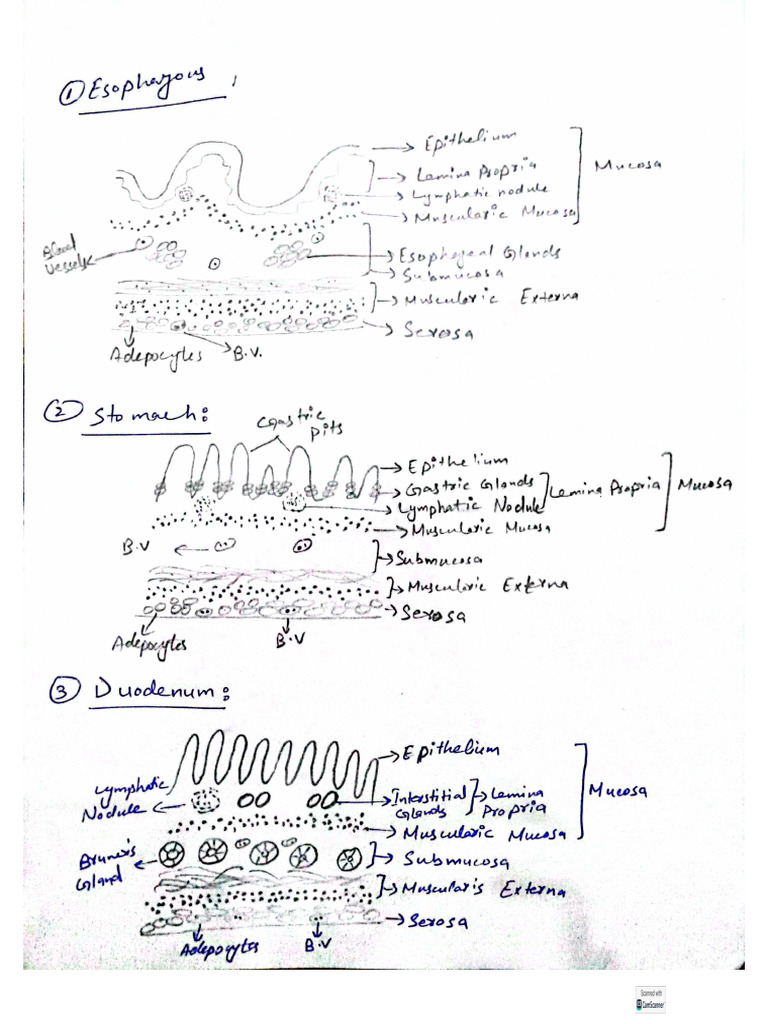 ① Esophagous
Epithelium
Lamina Propria
Mucosa
Lymphatic nodule
Muscularic Mucosa
Blood
Vessels
Esophageal Glands
Submucosa
Muscularic Externa
Serosa
Adepocytes
B.V.
② Stomach:
Gastric
pits
Epithelium
Gastric Glands
Lamina Propria
Mucosa
Lymphatic Nodule
Muscularic Mucosa
B.V
Submucosa
Muscularic Externa
Serosa
Adepocytes
B.V
③ Duodenum:
Epithelium
Lymphatic
Nodule
Mucosa
Interstitial
Glands
Lamina
Propria
Muscularic Mucosa
Bruner's
Gland
Submucosa
Muscularis Externa
Serosa
Adepocytes
B.V
Scanned with
CamScanner